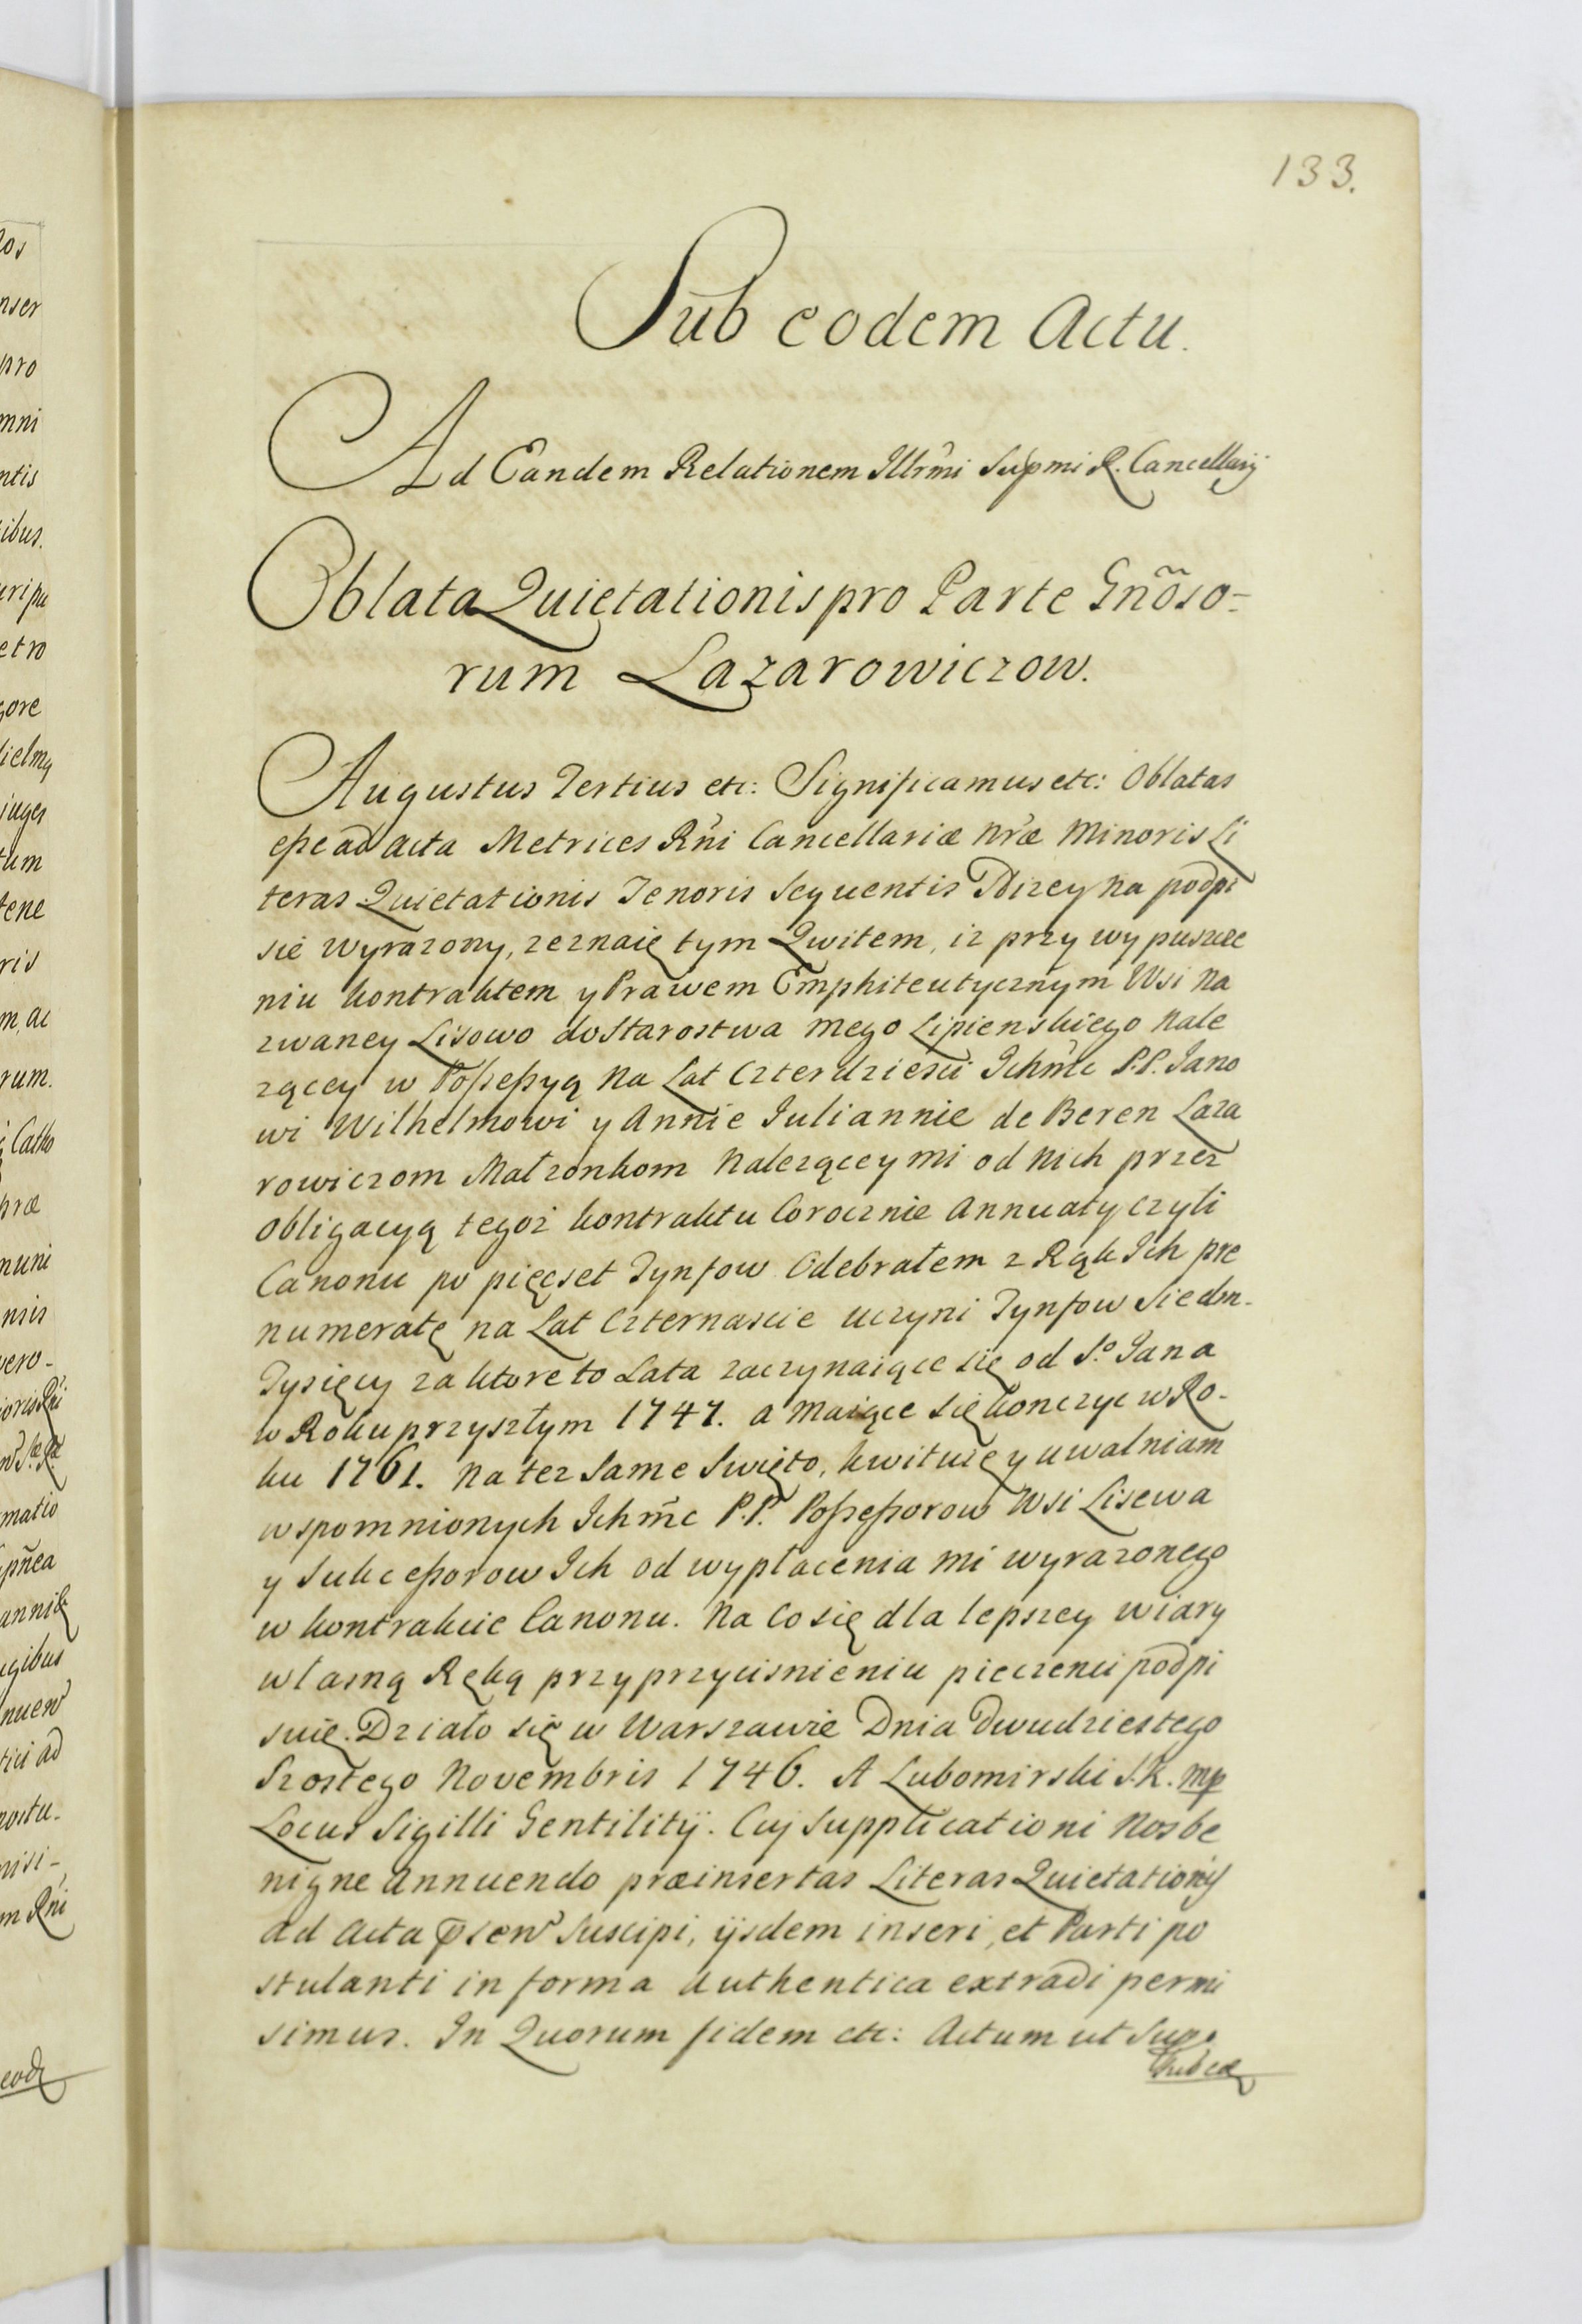 133.
Sub eodem Actu.
Ad Eandem Relationem Illrmi Supmi R. Cancellarij
Oblata Quietationis pro Parte Gnõso-
rum Lazarowiczow.
Augustus Tertius etc: Significamus etc: Oblatas
eße ad Acta Metrices Rni Cancellariæ Nræ Minoris Li
teras Quietationis Tenoris Sequentis Niżey na podpi
sie wyrazony, zeznaię tym Qwitem, iz przy wypuszcze
niu kontraktem y Prawem Emphiteutycznym Wsi Na
zwaney Lisowo do Starostwa mego Lipienskiego Nale
zącey w Poßeßyą na Lat Czterdziesci Ichmc P.P. Jano
wi Wilhelmowi y Annie Juliannie de Beren Laza
rowiczom Małzonkom Nalezącey mi od Nich przez
obligacyą tegoz kontraktu Corocznie Annuaty czyli
Canonu po pięcset Tynfow Odebrałem z Rąk Ich pre
numeratę na Lat Czternascie uczyni Tynfow Siedm-
Tysięcy za ktore to Lata zaczynaiące się od S.º Jana
w Roku przyszłym 1747. a Maiące się konczyc w Ro-
ku 1761. Na tez Same Swięto, kwituię y uwalniam
wspomnionych Ichmc P.P. Poßeßorow Wsi Lisewa
y Sukceßorow Ich od wypłacenia mi wyrazonego
w kontrakcie Canonu. Na Co się dla lepszey wiary
własną Ręką przy przycisnieniu pieczenci podpi
suię. Działo się w Warszawie Dnia Dwudziestego
Szostego Novembris 1746. A Lubomirski S.K. mp
Locus Sigilli Gentilitij. Cuj Supplicationi Nos be
nigne Annuendo præinsertas Literas Quietationis
ad Acta Suscipi, ijsdem inseri, et Parti po
stulanti in forma Authentica extradi permi
simus. In Quorum fidem etc: Actum ut Supo
Sub eod